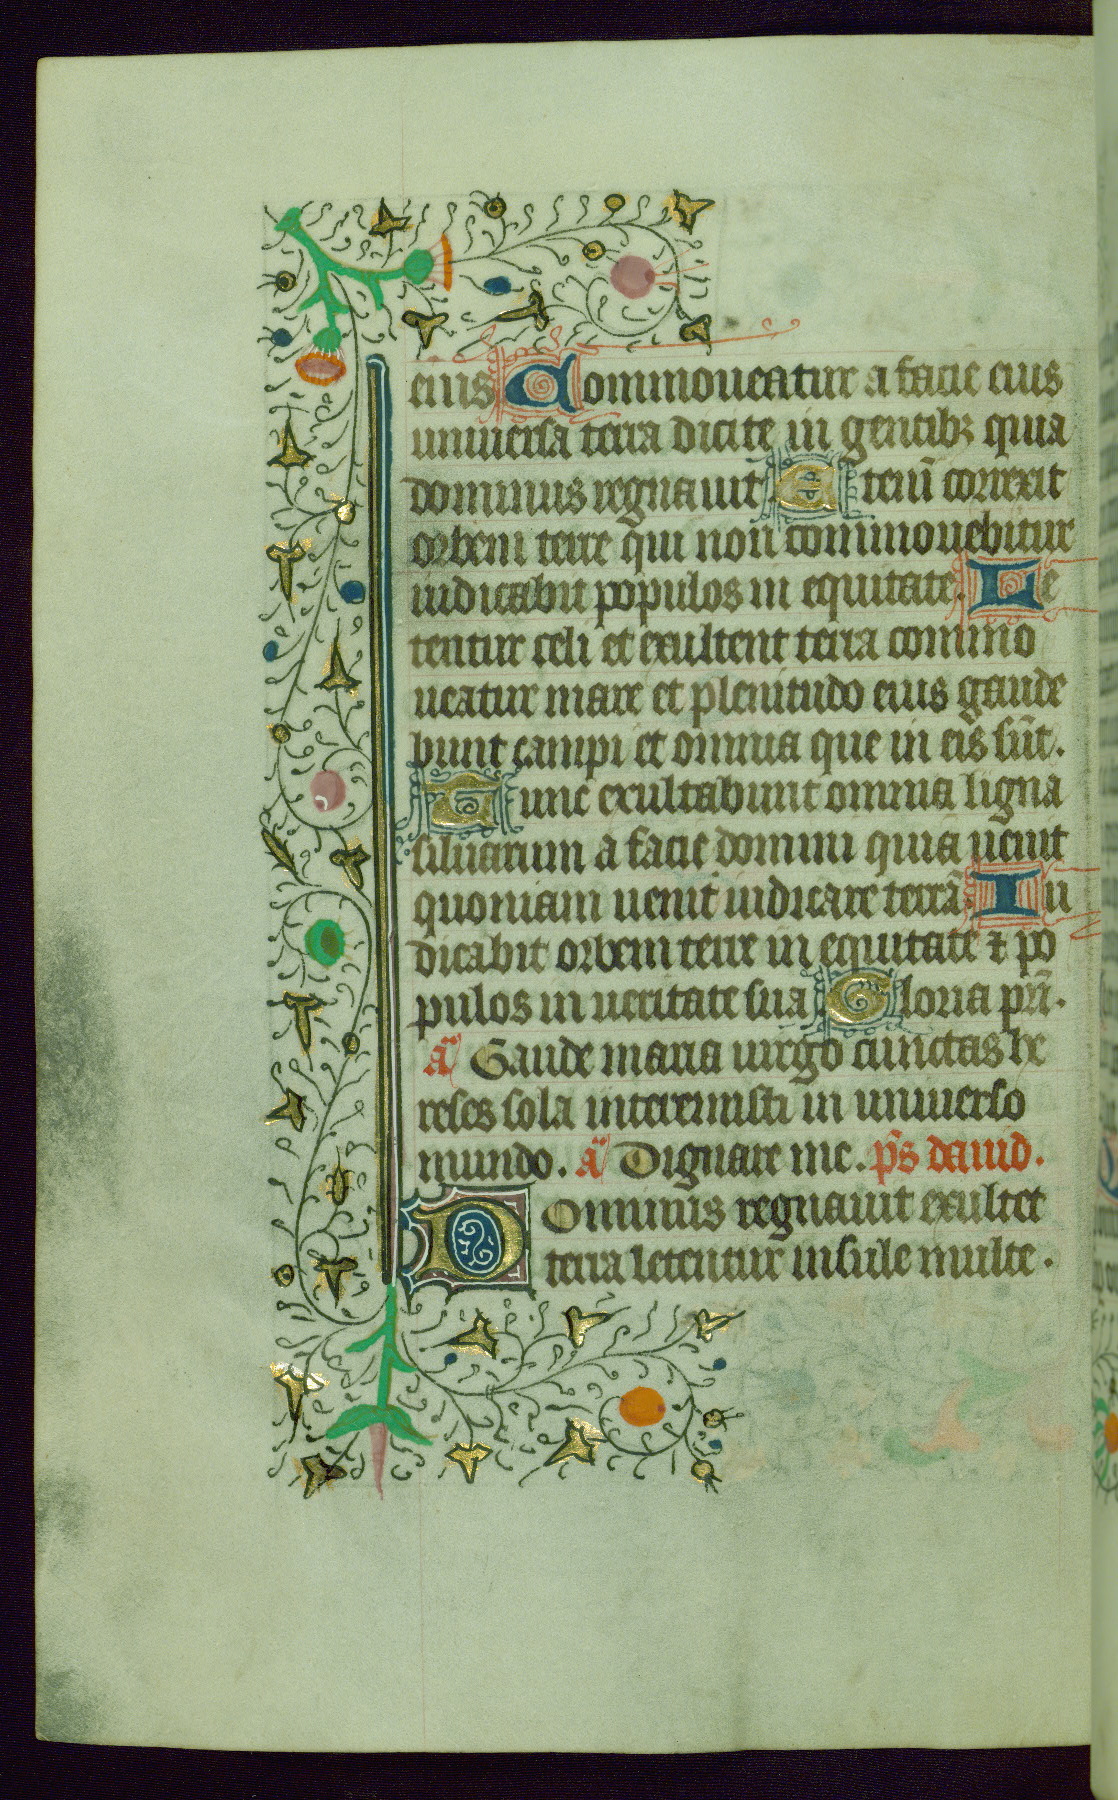 eius Commoueatur a facie eius
uniuersa terra dicite in gentibꝫ quia
dominus regnauit Etenī correxit
orbem terre qui non commouebitur
iudicabit populos in equitate. Le
tentur celi et exultent terra commo
ueatur mare et plenitudo eius gaude
bunt campi et omnia que in eis sūt.
Tunc exultabunt omnia ligna
siluarum a facie domini quia uenit
quoniam uenit iudicare terrā. Iu
dicabit orbem terre in equitate ⁊ po
pulos in ueritate sua Gloria pr̄i.
añ Gaude maria uirgo cunctas he
reses sola interemisti in uniuerso
mundo. añ Dignare me. ps̄ dauid.
Dominus regnauit exultet
terra letentur insule multe.